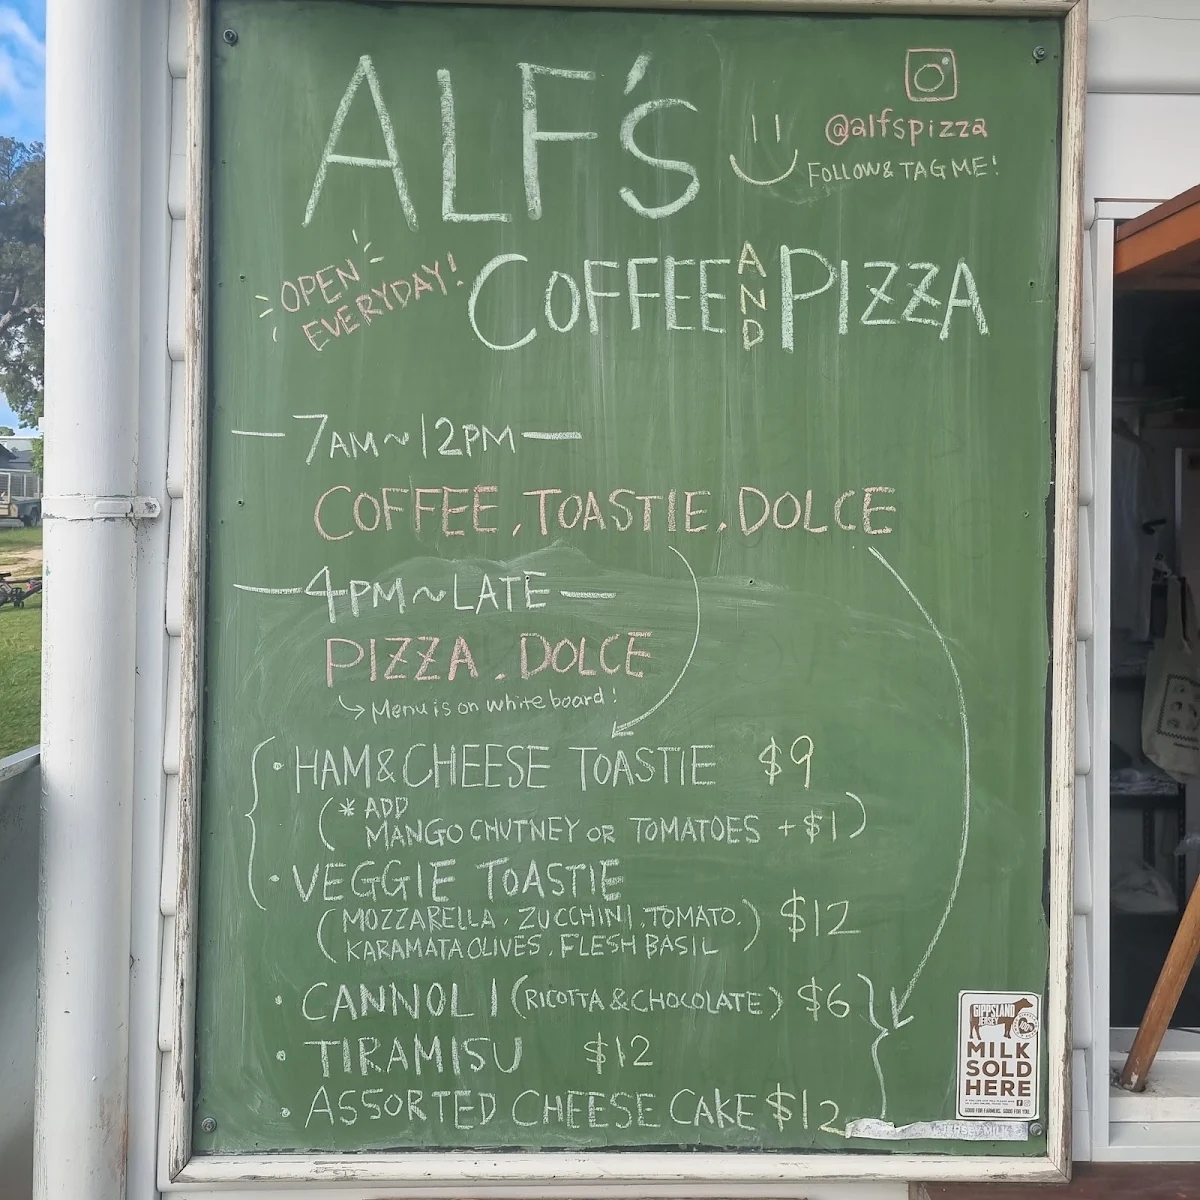 ALF'S
@alfspizza
FOLLOW & TAG ME!
OPEN
EVERYDAY!
COFFEE AND PIZZA
— 7AM ~ 12PM —
COFFEE, TOASTIE, DOLCE
— 4PM ~ LATE —
PIZZA, DOLCE
Menu is on white board!
• HAM & CHEESE TOASTIE $9
(* ADD
MANGO CHUTNEY OR TOMATOES +$1)
• VEGGIE TOASTIE
(MOZZARELLA, ZUCCHINI, TOMATO,
KARAMATA OLIVES, FLESH BASIL) $12
• CANNOLI (RICOTTA & CHOCOLATE) $6
• TIRAMISU $12
• ASSORTED CHEESE CAKE $12
GIPPSLAND
JERSEY
MILK
SOLD
HERE
GOOD FOR FARMERS. GOOD FOR YOU.